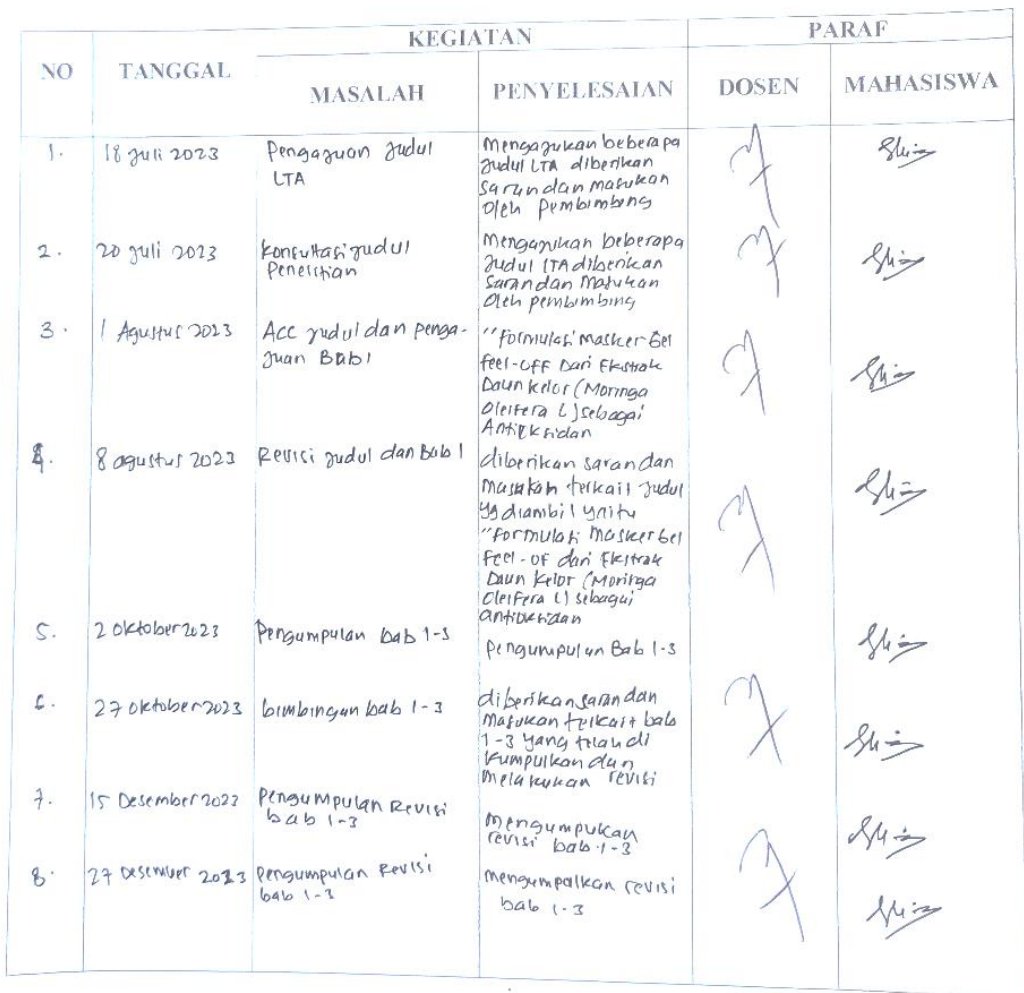 KEGIATAN
PARAF
NO
TANGGAL
MASALAH
PENYELESAIAN
DOSEN
MAHASISWA
1.
18 Juli 2023
Pengajuan Judul
LTA
Mengajukan beberapa
Judul LTA diberikan
Saran dan Masukan
Oleh Pembimbing
2.
20 Juli 2023
Konsultasi Judul
Penelitian
Mengajukan beberapa
Judul LTA diberikan
Saran dan Masukan
Oleh pembimbing
3.
1 Agustus 2023
Acc Judul dan penga-
Juan Bab 1
"Formulasi Masker Gel
feel-off Dari Ekstrak
Daun kelor (Moringa
Oleifera L) sebagai
Antioksidan
4.
8 agustus 2023
Revisi Judul dan Bab 1
diberikan saran dan
Masukan terkait Judul
yg diambil yaitu
"Formulasi Masker Gel
Feel-of dari Ekstrak
Daun kelor (Moringa
Oleifera L) sebagai
antioksidan
5.
2 Oktober 2023
Pengumpulan bab 1-3
Pengumpulan Bab 1-3
6.
27 Oktober 2023
bimbingan bab 1-3
diberikan saran dan
Masukan terkait bab
1-3 yang telah di
kumpulkan dan
melakukan revisi
7.
15 Desember 2023
Pengumpulan Revisi
bab 1-3
Mengumpukan
revisi bab 1-3
8.
27 Desember 2023
Pengumpulan Revisi
bab 1-3
mengumpulkan revisi
bab 1-3